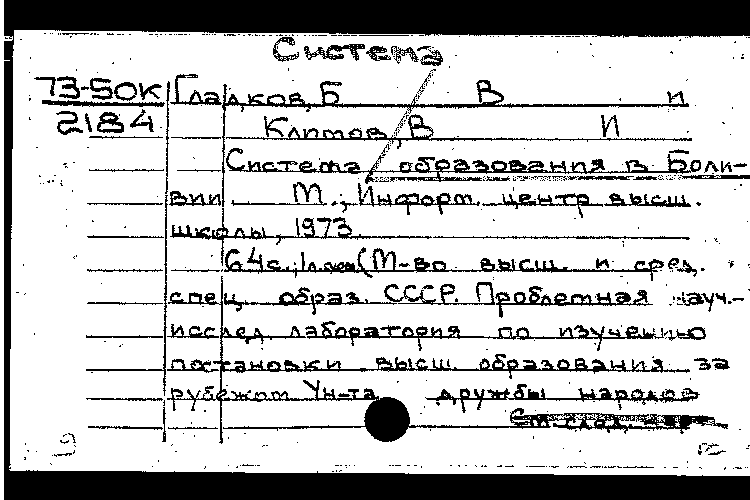 Система
73-50К Гладков, Б В и
2184 Климов, В И
Система образования в Боли-
вии. М., Информ. центр высш.
школы, 1973
64с.; (М-во высш. и сред.
спец. образ. СССР. Проблемная науч.-
исслед. лаборатория по изучению
постановки высш. образования за
рубежом Ун-та дружбы народов
См. след. кар